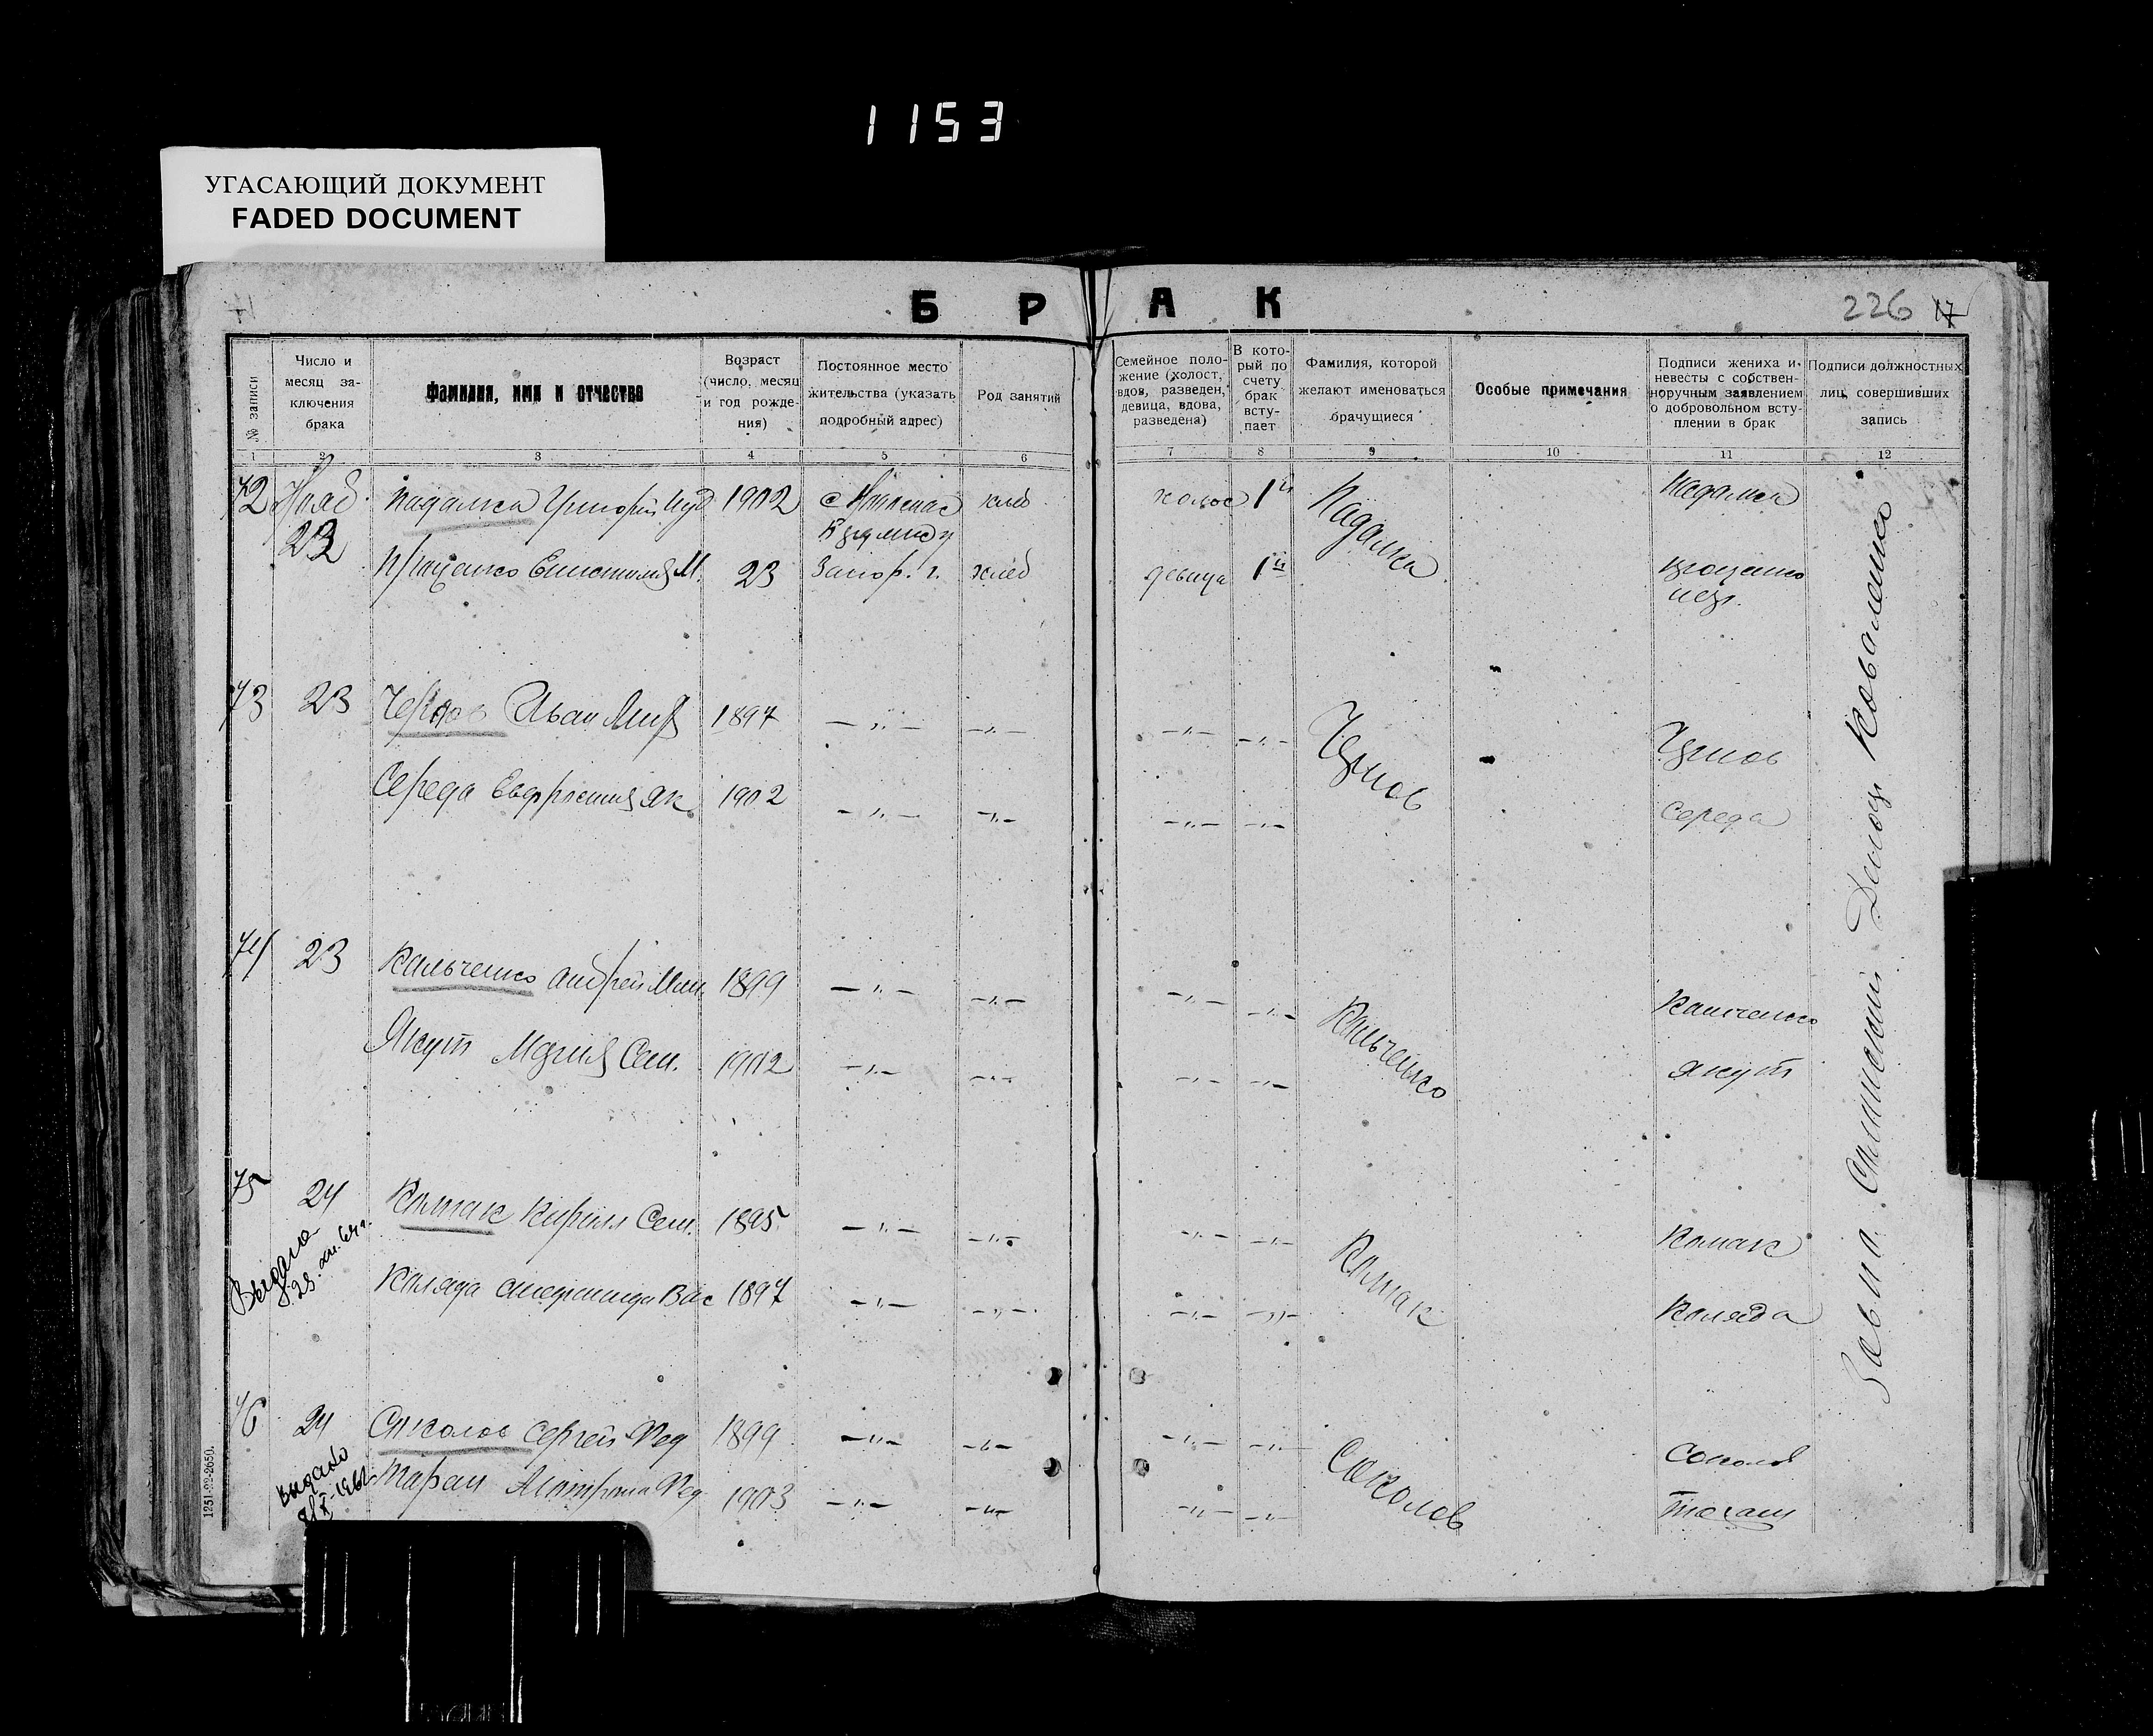 1153
УГАСАЮЩИЙ ДОКУМЕНТ
FADED DOCUMENT
Б Р А К
226
№ записи
Число и месяц заключения брака
Фамилия, имя и отчество
Возраст (число, месяц и год рождения)
Постоянное место жительства (указать подробный адрес)
Род занятий
Семейное положение (холост, вдов, разведен, девица, вдова, разведена)
В который по счету брак вступает
Фамилия, которой желают именоваться брачущиеся
Особые примечания
Подписи жениха и невесты с собственноручным заявлением о добровольном вступлении в брак
Подписи должностных лиц, совершивших запись
1 2 3 4 5 6 7 8 9 10 11 12
72 Нояб. Падалка Григорий 1902 с. хлеб холос 1й Падалка Падалка
23
Проценко М. 23 Запор. г. хлеб девица 1й Проценко
73 23 Чернов Иван 1897 —"— —"— —"— —"— Чернов Чернов
Середа Евфросиния Як. 1902 —"— —"— —"— —"— Середа
74 23 Кальченко Андрей 1899 —"— —"— —"— —"— Кальченко Кальченко
Якут Мария Сем. 1902 —"— —"— —"— —"— Якут
75 24 Колпак Кирилл Сем. 1895 —"— —"— —"— —"— Колпак Колпак
Выдано
Коляда Вас 1897 —"— —"— —"— —"— Коляда
76 24 Соколов Сергей Фед 1899 —"— —"— —"— —"— Соколов Соколов
выдано
Таран Матрона Фед 1903 —"— —"— —"— —"— Таран
Коваленко
1251-22-2650.